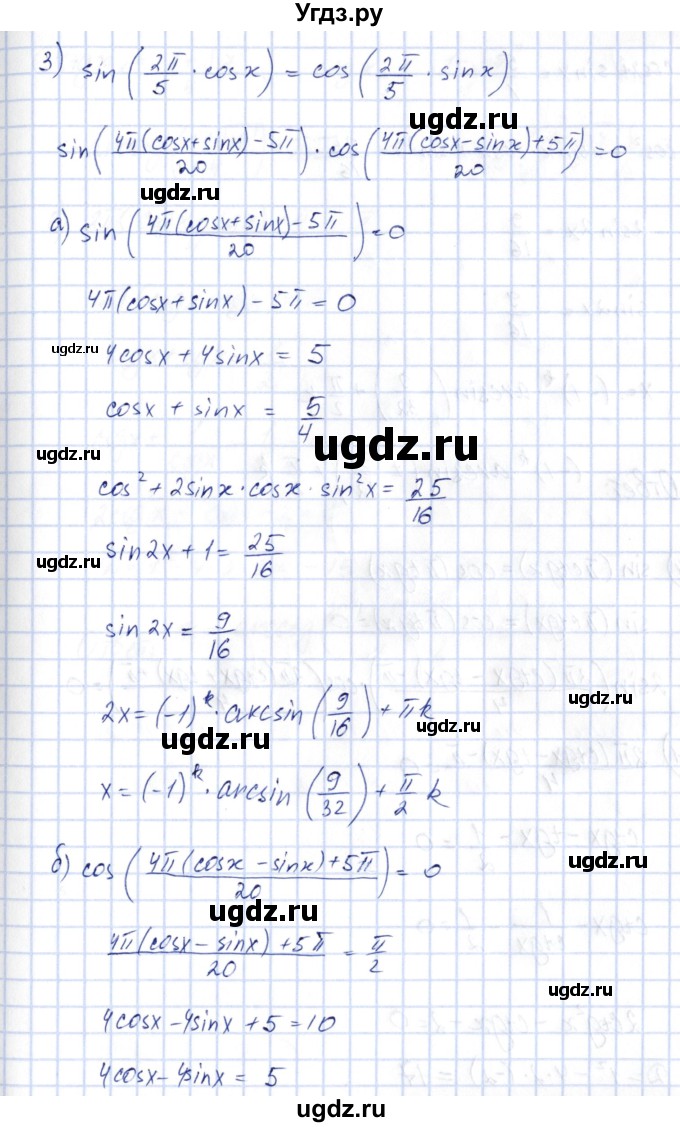 Угдз.ру
3) sin(2π/5 · cosx) = cos(2π/5 · sinx)
sin((4π(cosx+sinx)-5π)/20) · cos((4π(cosx-sinx)+5π)/20) = 0
ugdz.ru
а) sin((4π(cosx+sinx)-5π)/20) = 0
4π(cosx+sinx)-5π = 0
ugdz.ru
4cosx + 4sinx = 5
cosx + sinx = 5/4
ugdz.ru
ugdz.ru
cos² + 2sinx · cosx · sin²x = 25/16
sin2x + 1 = 25/16
ugdz.ru
sin2x = 9/16
ugdz.ru
2x = (-1)^k · arcsin(9/16) + πk
ugdz.ru
x = (-1)^k · arcsin(9/32) + π/2 k
ugdz.ru
б) cos((4π(cosx - sinx)+5π)/20) = 0
ugdz.ru
(4π(cosx - sinx) + 5π)/20 = π/2
ugdz.ru
4cosx - 4sinx + 5 = 10
4cosx - 4sinx = 5
ugdz.ru